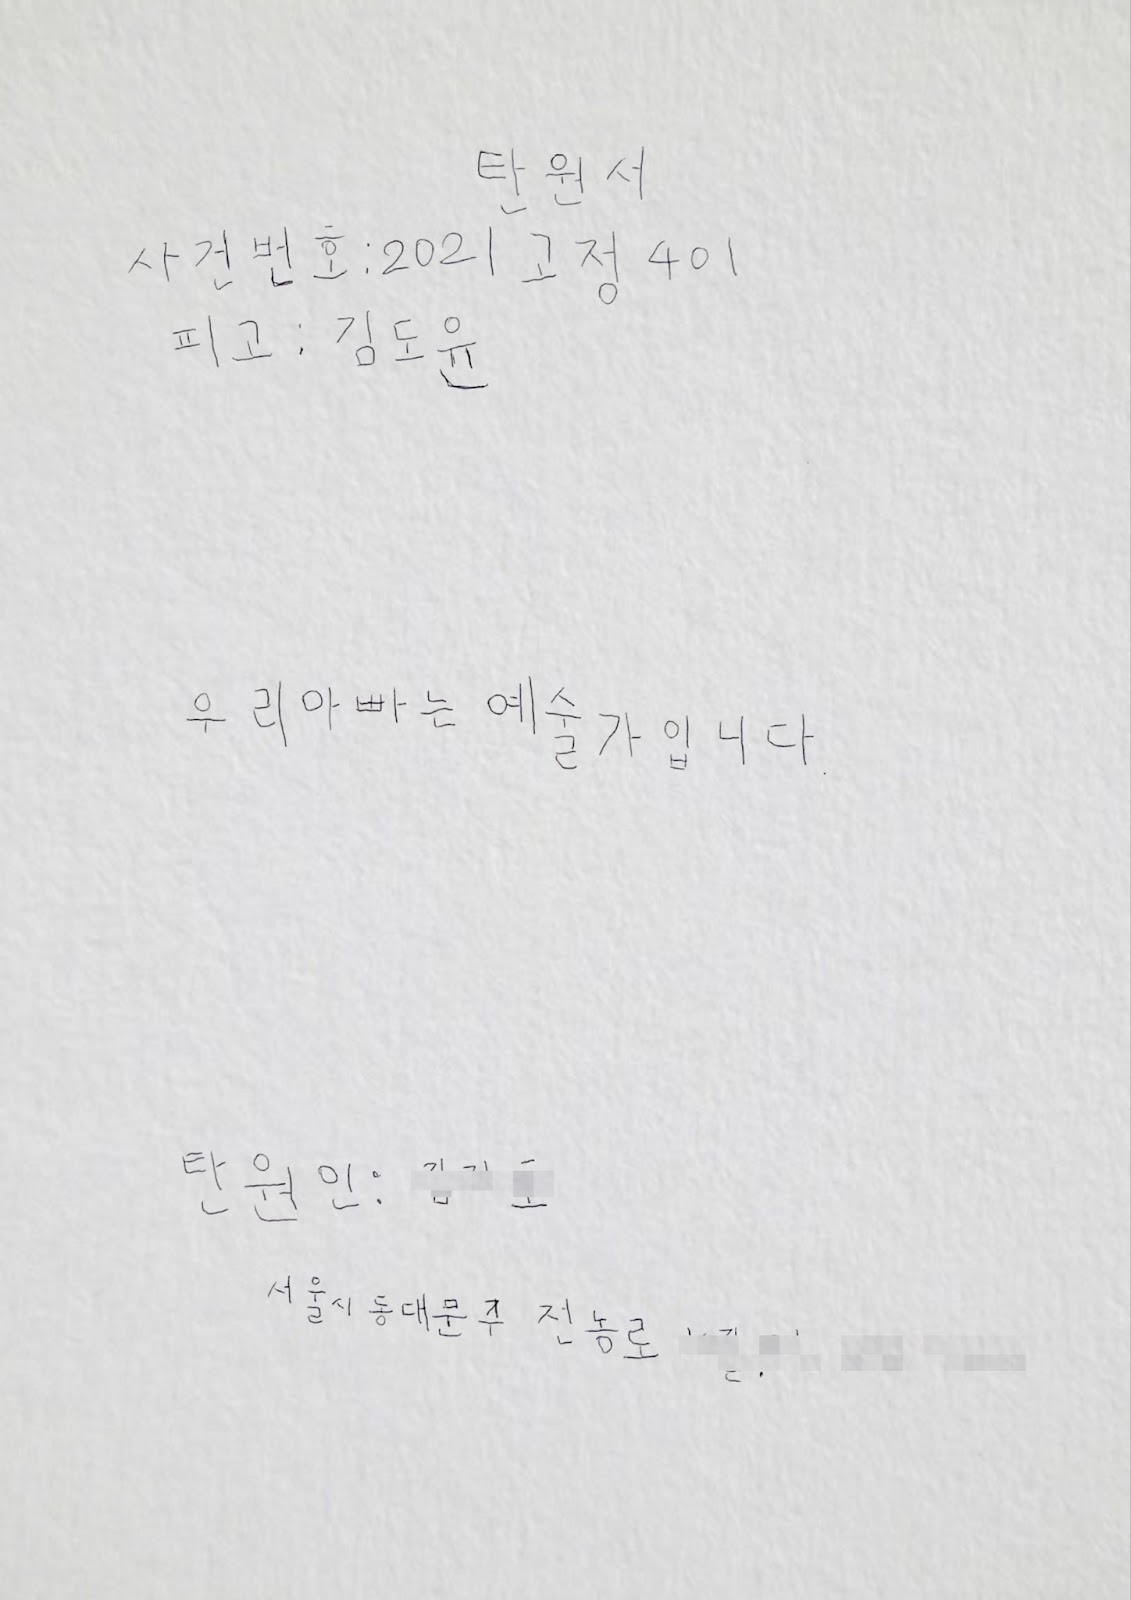 탄원서
사건번호:2021고정401
피고: 김도윤
우리아빠는 예술가입니다.
탄원인:
서울시동대문구 전농로